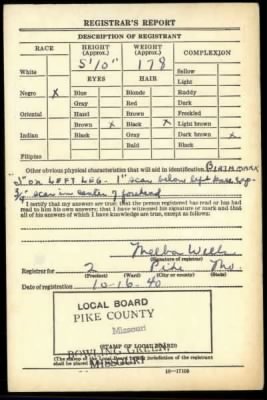 REGISTRAR'S REPORT
DESCRIPTION OF REGISTRANT
RACE HEIGHT (Approx.) WEIGHT (Approx.) COMPLEXION
5'10" 178
White Sallow
EYES HAIR Light
Negro X Blue Blonde Ruddy
Gray Red Dark
Oriental Hazel Brown Freckled
Brown X Black X Light brown
Indian Black Gray Dark brown X
Bald Black
Filipino
Other obvious physical characteristics that will aid in identification BIRTH MARK
ON LEFT LEG. 1" scar below left knee
3/4" scar in center of forehead
I certify that my answers are true; that the person registered has read or has had
read to him his own answers; that I have witnessed his signature or mark and that
all of his answers of which I have knowledge are true, except as follows:
Melba Wells
(Signature of registrar)
Registrar for 2 Pike Mo.
(Precinct) (Ward) (City or county) (State)
Date of registration 10-16-40
LOCAL BOARD
PIKE COUNTY
Missouri
(STAMP OF LOCAL BOARD)
BOWLING GREEN,
MISSOURI
16—17105